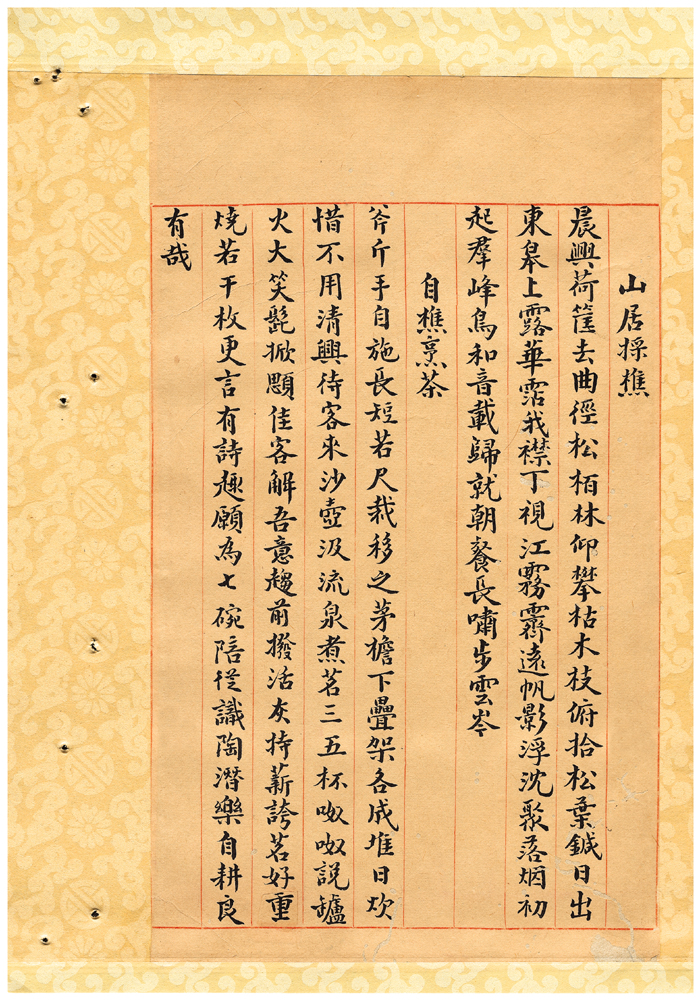 山居採樵
晨興荷筐去曲徑松栢林仰攀枯木枝俯拾松葉鍼日出
東皋上露華霑我襟下視江霧霽遠帆影浮沈聚落烟初
起羣峰鳥和音載歸就朝餐長嘯步雲岑
自樵烹茶
斧斤手自施長短若尺裁移之茅檐下疊架各成堆日炊
惜不用清興待客來沙壺汲流泉煮茗三五杯呶呶説罏
火大笑髭掀顋佳客解吾意趨前撥活灰持薪誇茗好重
燒若干枚更言有詩趣願為七碗陪從識陶潛樂自耕良
有哉